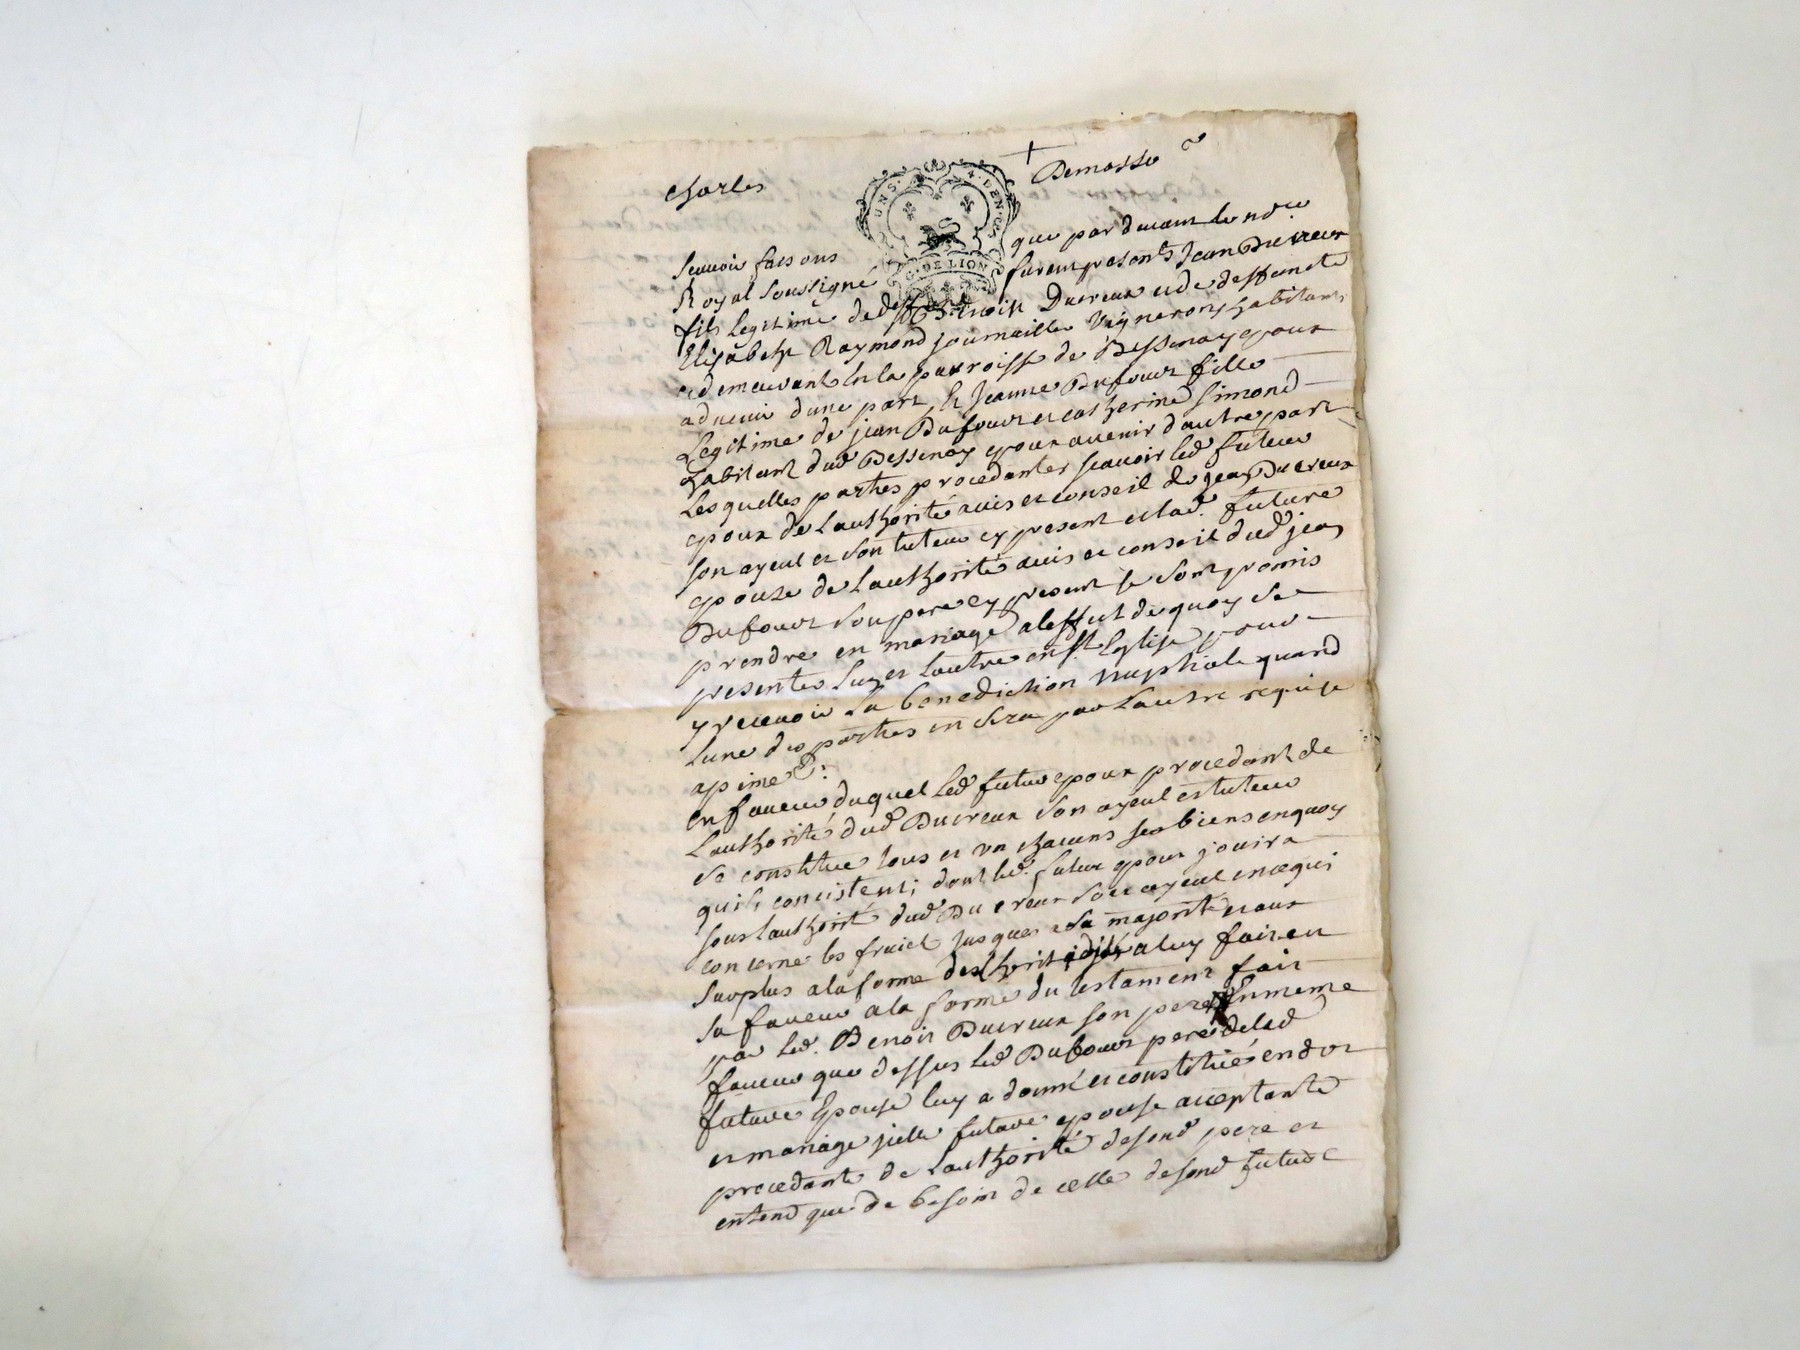 Charles Demasso
UN S. X. DEN. ES
G. DE LION
Scavoir faisons que par devant le no.re
Royal soussigné furent presents Jean Ducreux
fils legitime de deff. Benoist Ducreux et de deffuncte
Elisabeth Raymond journailler Vigneron habitant
et demeurant en la parroisse de Bessenay epoux
advenir dune part, et Jeanne Dufour fille
Legitime de jean Dufour et catherine Simond
habitant dud Bessenay epoux avenir dautre part
Lesquelles parties procedantes scavoir led futeur
epoux de Lauthorité avis et conseil de jean Ducreux
son ayeul et son tuteur cy present et lad. future
epouze de Lauthorité avis et conseil dud jean
Dufour son pere cy present se sont promis
prendre en mariage a leffect de quoy se
presenter luy et lautre en ste Eglise pour
y recevoir La benediction nuptiale quand
lune des parties en sera par Lautre requise
a pine &:
en faveur duquel Led futur epoux procedant de
Lauthorité dud Ducreux son ayeul et tuteur
se constitue tous et un chacuns ses biens en quoy
quils concistent; dont led. futur epoux jouira
sous lauthorité dud Ducreux son ayeul en ce qui
concerne les fruict jusques a sa majorité et aux
surplus a la forme des a luy fait en
sa faveur a la forme du testament fait
par led. Benoit Ducreux son pere En meme
faveur que dessus led Dufour pere de lad
future Epouse luy a donné et constitué en dot
et mariage jcelle future epouse acceptante
procedante de Lauthorité desond pere et
entend que de besoin de celle desond futur